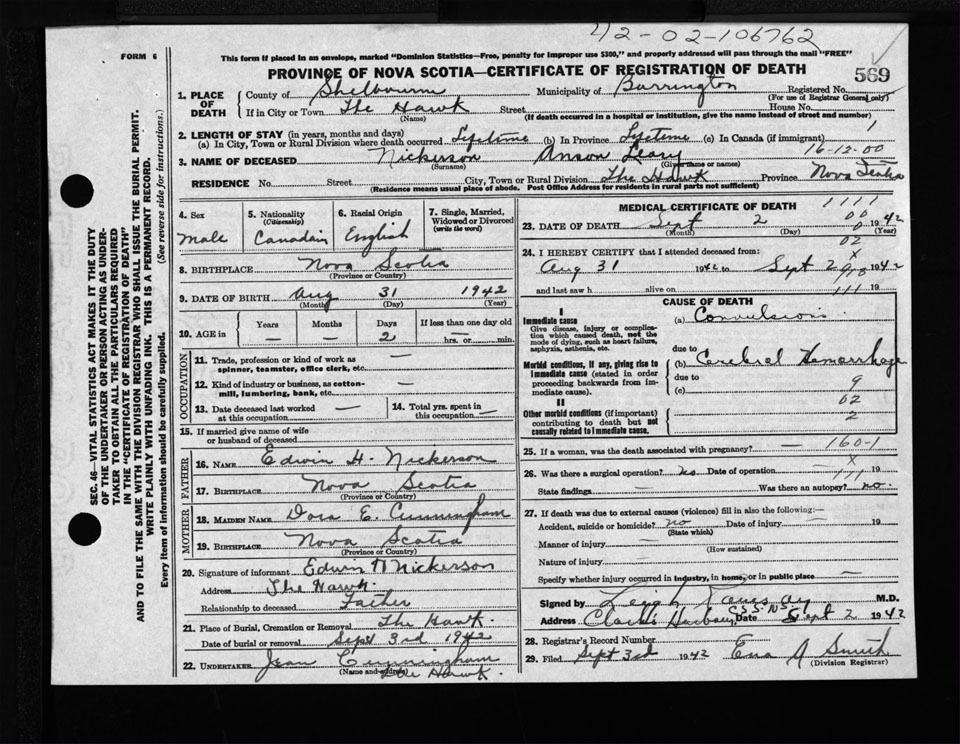 42-02-106762
FORM 6
This form if placed in an envelope, marked "Dominion Statistics—Free, penalty for improper use $300," and properly addressed will pass through the mail "FREE"
PROVINCE OF NOVA SCOTIA—CERTIFICATE OF REGISTRATION OF DEATH
569
1. PLACE OF DEATH
County of Shelburne Municipality of Barrington Registered No.
(For use of Registrar General only)
If in City or Town The Hawk Street House No.
(Name) (If death occurred in a hospital or institution, give the name instead of street and number)
2. LENGTH OF STAY (in years, months and days)
(a) In City, Town or Rural Division where death occurred Lifetime (b) In Province Lifetime (c) In Canada (if immigrant)
1
16-12-00
3. NAME OF DECEASED Nickerson Anson Leary
(Surname) (Given name or names)
RESIDENCE No. Street City, Town or Rural Division The Hawk Province Nova Scotia
(Residence means usual place of abode. Post Office Address for residents in rural parts not sufficient)
4. Sex
Male
5. Nationality
(Citizenship)
Canadian
6. Racial Origin
English
7. Single, Married, Widowed or Divorced
(write the word)
8. BIRTHPLACE Nova Scotia
(Province or Country)
9. DATE OF BIRTH Aug 31 1942
(Month) (Day) (Year)
10. AGE in
Years Months Days If less than one day old
— — 2 — hrs. or min.
OCCUPATION
11. Trade, profession or kind of work as spinner, teamster, office clerk, etc. —
12. Kind of industry or business, as cotton-mill, lumbering, bank, etc. —
13. Date deceased last worked at this occupation —
14. Total yrs. spent in this occupation —
15. If married give name of wife or husband of deceased
FATHER
16. NAME Edwin H. Nickerson
17. BIRTHPLACE Nova Scotia
(Province or Country)
MOTHER
18. MAIDEN NAME Dora E. Cunningham
19. BIRTHPLACE Nova Scotia
(Province or Country)
20. Signature of informant Edwin H Nickerson
Address The Hawk.
Relationship to deceased Father
21. Place of Burial, Cremation or Removal The Hawk.
Date of burial or removal Sept 3rd 1942
22. UNDERTAKER Jean Cunningham
(Name and address) The Hawk.
MEDICAL CERTIFICATE OF DEATH
1111
00
23. DATE OF DEATH Sept 2 1942
(Month) (Day) (Year)
0
02
24. I HEREBY CERTIFY that I attended deceased from:
x
Aug 31 1942 to Sept 2 1942
and last saw h alive on 19
111
CAUSE OF DEATH
I
Immediate cause
Give disease, injury or complication which caused death, not the mode of dying, such as heart failure, asphyxia, asthenia, etc.
(a) Convulsions.
due to
Morbid conditions, if any, giving rise to immediate cause (stated in order proceeding backwards from immediate cause).
(b) Cerebral Hemorrhage
due to
(c)
9
02
2
II
Other morbid conditions (if important) contributing to death but not causally related to immediate cause.
25. If a woman, was the death associated with pregnancy? —
160-1
x
26. Was there a surgical operation? no Date of operation — 19
111
State findings — Was there an autopsy? no.
27. If death was due to external causes (violence) fill in also the following:—
Accident, suicide or homicide? no Date of injury — 19
(State which)
Manner of injury —
(How sustained)
Nature of injury —
Specify whether injury occurred in industry, in home, or in public place —
Signed by M.D.
Address Clark's Harbour, Date Sept 2 1942
28. Registrar's Record Number
29. Filed Sept 3rd 1942 Ena A Smith
(Division Registrar)
SEC. 46—VITAL STATISTICS ACT MAKES IT THE DUTY
OF THE UNDERTAKER OR PERSON ACTING AS UNDER-
TAKER TO OBTAIN ALL THE PARTICULARS REQUIRED
IN THE "CERTIFICATE OF REGISTRATION OF DEATH"
AND TO FILE THE SAME WITH THE DIVISION REGISTRAR WHO SHALL ISSUE THE BURIAL PERMIT.
WRITE PLAINLY WITH UNFADING INK. THIS IS A PERMANENT RECORD.
Every item of information should be carefully supplied. (See reverse side for instructions.)